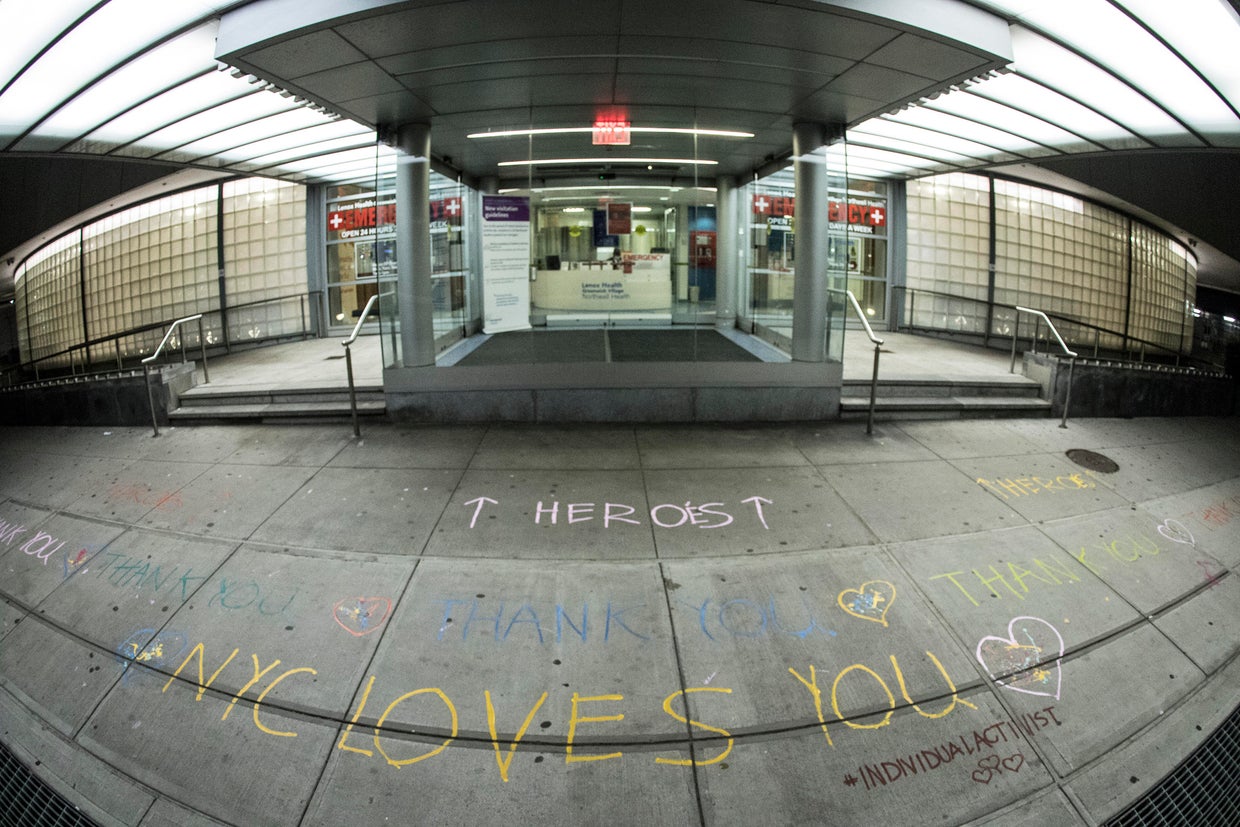 Lenox Health
EMERGENCY
OPEN 24 HOURS
New visitation
guidelines
EMERGENCY
Lenox Health
Greenwich Village
Northwell Health
Northwell Health
EMERGENCY
DAYS A WEEK
↑ HEROES ↑
↑HEROES↑
THANK YOU
THANK YOU
THANK YOU
THANK YOU
NYC LOVES YOU
#INDIVIDUALACTIVIST